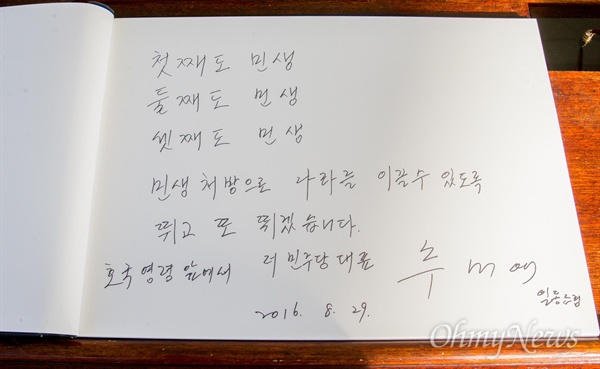 첫째도 민생
둘째도 민생
셋째도 민생
민생 처방으로 나라를 이끌수 있도록
뛰고 또 뛰겠습니다.
호국영령 앞에서 더민주당 대표 추미애
일동
2016. 8. 29.
OhmyNews